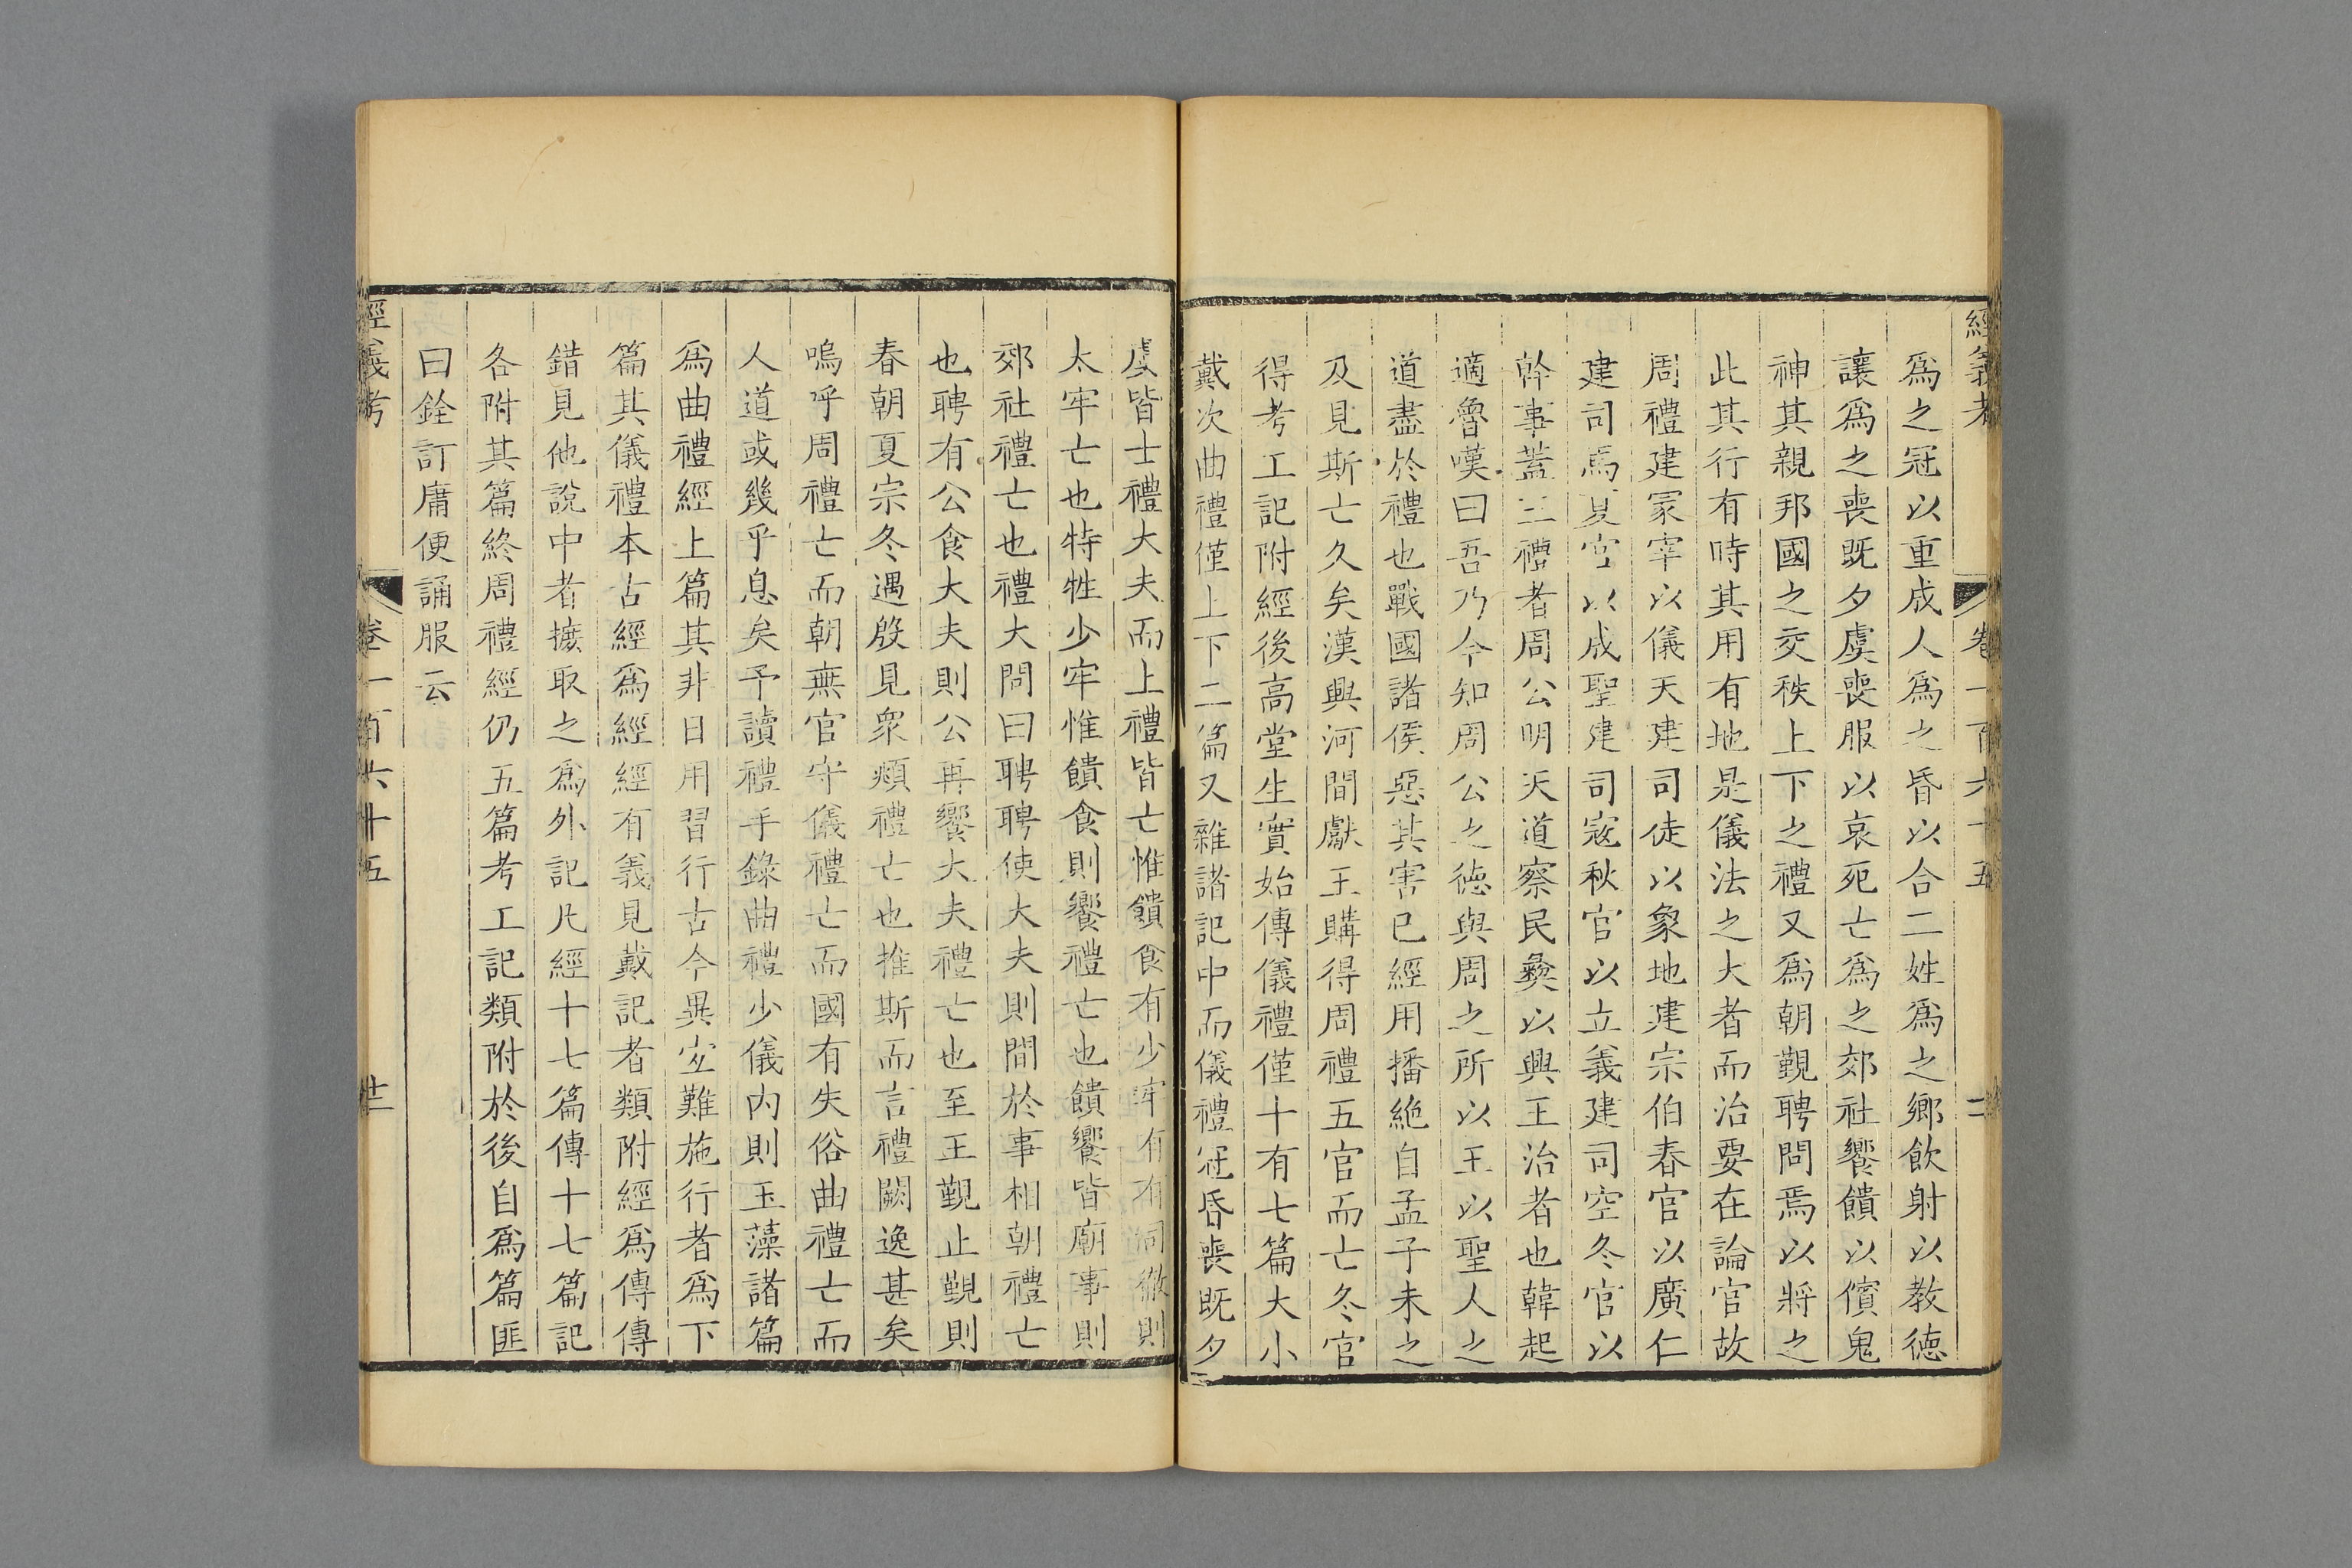 經義考 卷一百六十五 二
爲之冠以重成人爲之昏以合二姓爲之鄉飲射以教德
讓爲之喪既夕虞喪服以哀死亡爲之郊社饗饋以儐鬼
神其親邦國之交秩上下之禮又爲朝覲聘問焉以將之
此其行有時其用有地是儀法之大者而治要在論官故
周禮建冢宰以儀天建司徒以象地建宗伯春官以廣仁
建司馬夏官以成聖建司寇秋官以立義建司空冬官以
幹事蓋三禮者周公明天道察民彝以興王治者也韓起
適魯嘆曰吾乃今知周公之德與周之所以王以聖人之
道盡於禮也戰國諸侯惡其害已經用播絶自孟子未之
及見斯亡久矣漢興河間獻王購得周禮五官而亡冬官
得考工記附經後高堂生實始傳儀禮僅十有七篇大小
戴次曲禮僅上下二篇又雜諸記中而儀禮冠昏喪既夕
虞皆士禮大夫而上禮皆亡惟饋食有少牢有有司徹則
太牢亡也特牲少牢惟饋食則饗禮亡也饋饗皆廟事則
郊社禮亡也禮大問曰聘聘使大夫則間於事相朝禮亡
也聘有公食大夫則公再饗大夫禮亡也至王覲止覲則
春朝夏宗冬遇殷見衆頫禮亡也推斯而言禮闕逸甚矣
嗚呼周禮亡而朝無官守儀禮亡而國有失俗曲禮亡而
人道或幾乎息矣予讀禮手錄曲禮少儀內則玉藻諸篇
爲曲禮經上篇其非日用習行古今異宐難施行者爲下
篇其儀禮本古經爲經經有義見戴記者類附經爲傳傳
錯見他說中者摭取之爲外記凡經十七篇傳十七篇記
各附其篇終周禮經仍五篇考工記類附於後自爲篇匪
曰銓訂庸便誦服云
經義考 卷一百六十五 廿二